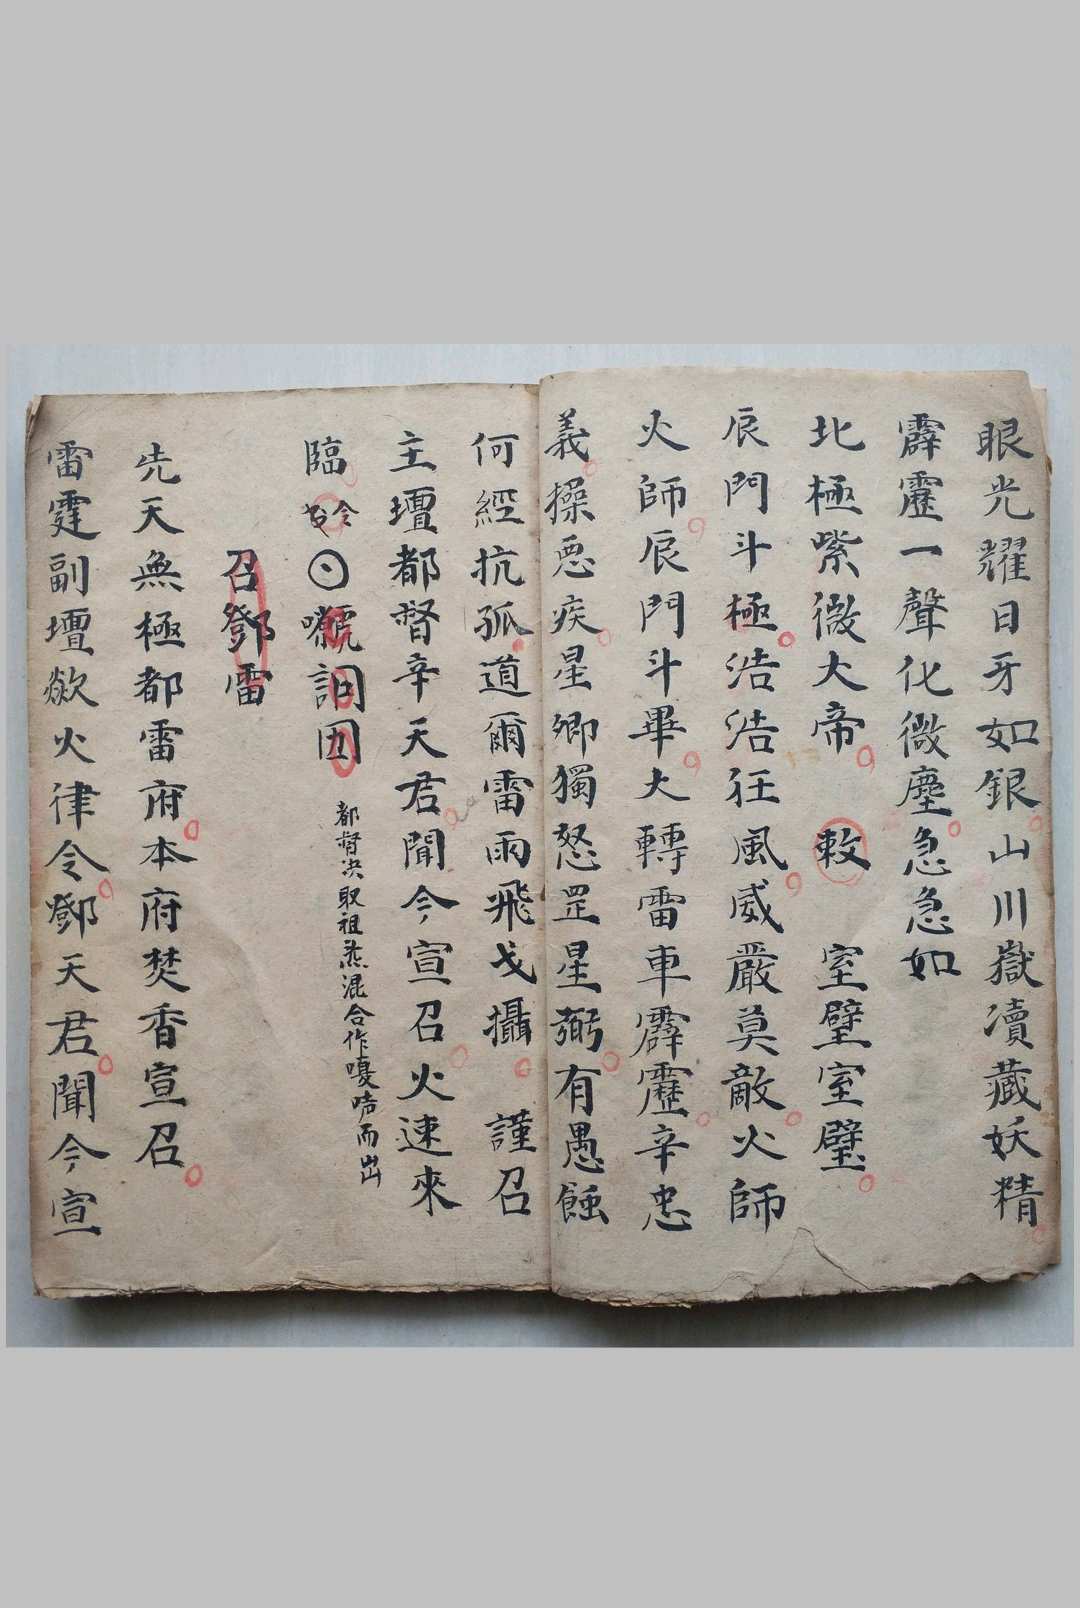 眼光耀日牙如銀山川嶽瀆藏妖精
霹靂一聲化微塵急急如
北極紫微大帝 敕 室壁室壁
辰門斗極浩浩狂風威嚴莫敵火師
火師辰門斗畢大轉雷車霹靂辛忠
義操惡疾星卿獨怒罡星弼有愚蝕
何經抗孤道爾雷雨飛戈攝 謹召
主壇都督辛天君聞今宣召火速來
臨
都督决取祖炁混合作嗄唂而出
召鄧雷
先天無極都雷府本府焚香宣召
雷霆副壇歘火律令鄧天君聞今宣